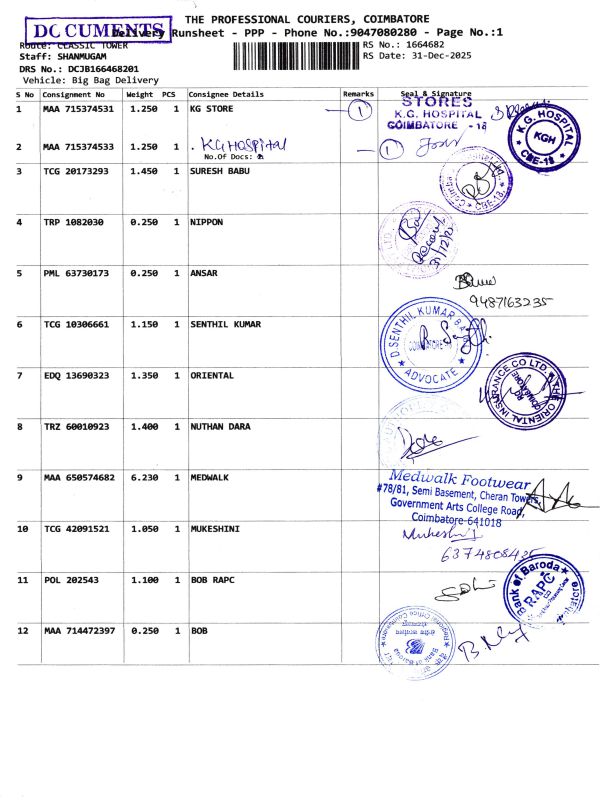 THE PROFESSIONAL COURIERS, COIMBATORE
DOCUMENTS
Delivery Runsheet - PPP - Phone No.:9047080280 - Page No.:1
Route: CLASSIC TOWER
RS No.: 1664682
Staff: SHANMUGAM
RS Date: 31-Dec-2025
DRS No.: DCJB166468201
Vehicle: Big Bag Delivery
S No Consignment No Weight PCS Consignee Details Remarks Seal & Signature
1 MAA 715374531 1.250 1 KG STORE 1
STORES
K.G. HOSPITAL
COIMBATORE - 18
K.G. HOSPITAL
KGH
CBE-18
2 MAA 715374533 1.250 1 . KG Hospital 1
No.Of Docs:
3 TCG 20173293 1.450 1 SURESH BABU
CBE-18
4 TRP 1082030 0.250 1 NIPPON
31/12/25
5 PML 63730173 0.250 1 ANSAR
9487163235
6 TCG 10306661 1.150 1 SENTHIL KUMAR
D.SENTHIL KUMAR B.A
ADVOCATE
7 EDQ 13690323 1.350 1 ORIENTAL
THE ORIENTAL INSURANCE CO LTD
COIMBATORE
8 TRZ 60010923 1.400 1 NUTHAN DARA
9 MAA 650574682 6.230 1 MEDWALK
Medwalk Footwear
#78/81, Semi Basement, Cheran Towers,
Government Arts College Road,
Coimbatore-641018
10 TCG 42091521 1.050 1 MUKESHINI
6374808425
11 POL 202543 1.100 1 BOB RAPC
Bank of Baroda
RAPC
12 MAA 714472397 0.250 1 BOB
Bank of Baroda